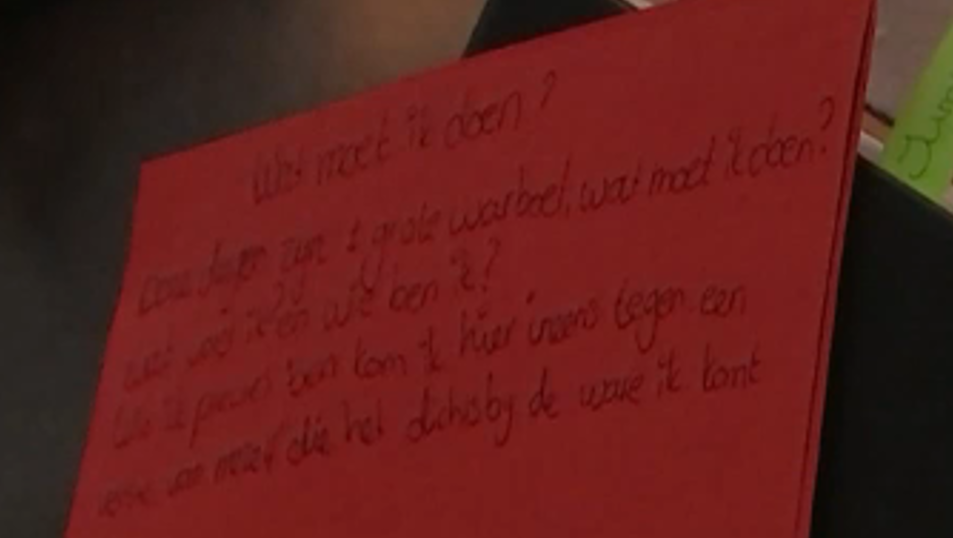 Wat moet ik doen?
Deze dagen zijn 1 grote warboel, wat moet ik doen?
wat voel ik en wie ben ik?
ik ben kom ik hier ineens tegen een
versie van mezelf die het dichtsbij de ware ik komt